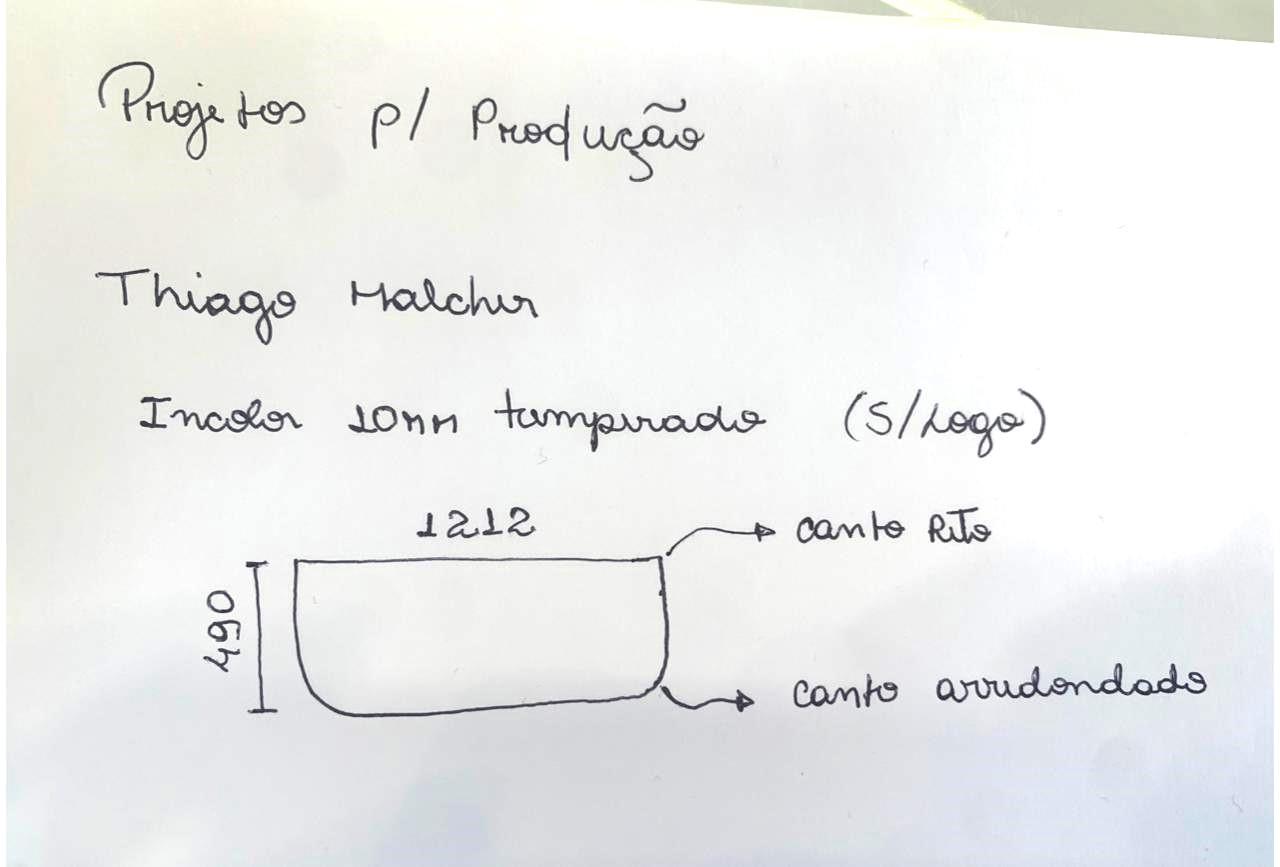 Projetos p/ Produção
Thiago Malcher
Incolor 10mm temperado (S/Logo)
1212
canto Reto
490
canto arredondado